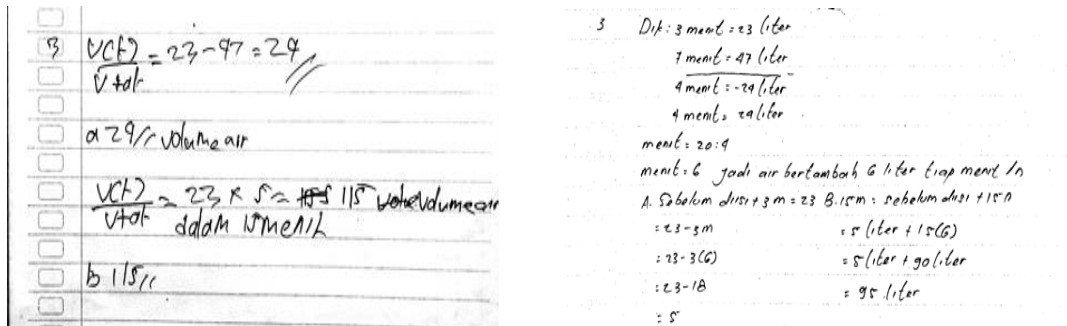 3 V(t)/Vtot = 23-47 = 24
a 24 volume air
V(t)/Vtot = 23 x 5 = 115 volume air
dalam 15 menit
b 115
3 Dik : 3 menit = 23 liter
7 menit = 47 liter
4 menit = -24 liter
4 menit = 24 liter
menit = 24:4
menit = 6 jadi air bertambah 6 liter tiap menit
A. Sebelum diisi + 3m = 23 B. 15m = sebelum diisi + 15
= 23-3m = 5 liter + 15(6)
= 23-3(6) = 5 liter + 90 liter
= 23-18 = 95 liter
= 5